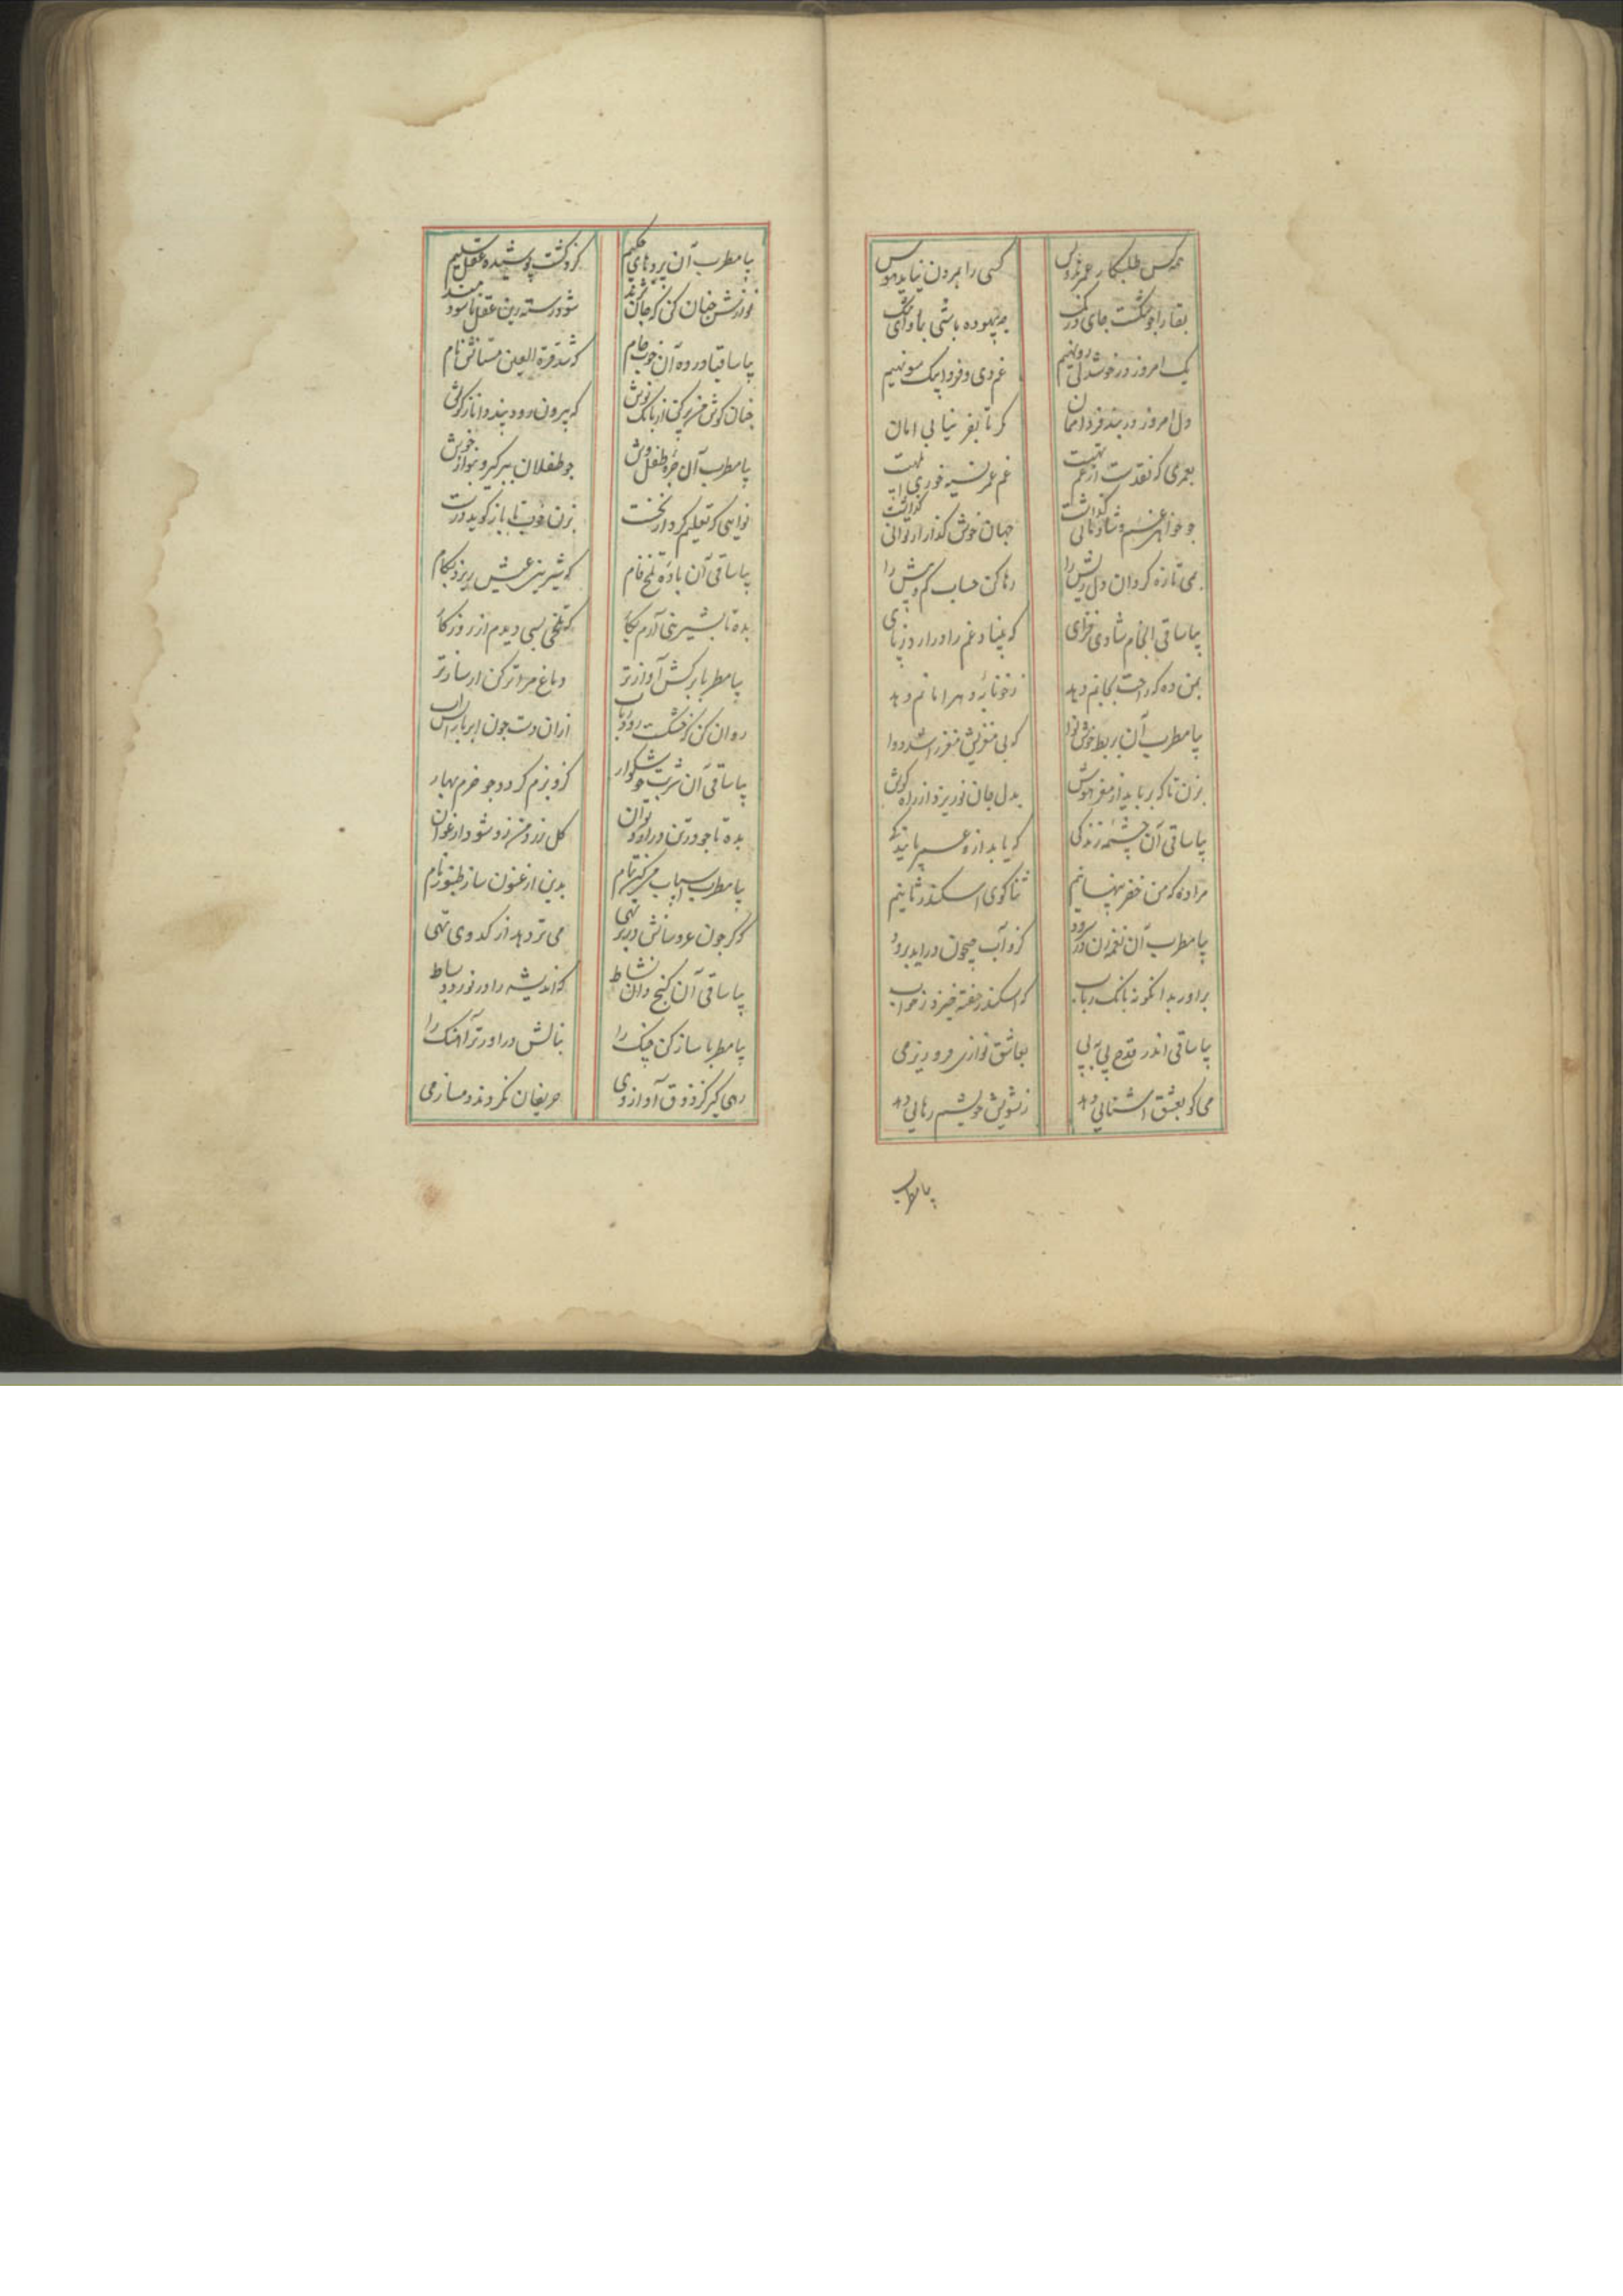 همه کس طلبکار عمرند و بس کسی را بمردن نیاید هوس
بقا را جو خشکست جای درنک چه بیهوده باشی
یک امروز در خوشدلی رو نهیم غم دی و فردا بیک سو نهیم
دل امروز در بند فردا ممان که تا بنفر نیابی امان
بعمری که نقدست از غم تهیست غم عمر نسیه خوری ابلهیست
جو خواهی غم و شادمانی گذاشت جهان خوش گذار ار توانی گذاشت
بمی تازه گردان دل ریش را رها کن حساب کم و بیش را
بیا ساقی آن جام شادی فزای که بنیاد غم را درارد ز پای
بمن ده که راحت بجانم دهد ز خونابهٔ دهر امانم دهد
بیا مطرب آن بربط خوش نوا که بی مغزیش مغز را شد دوا
بزن تا که برباید از مغز هوش بدل جان نو ریزد از راه گوش
بیا ساقی آن چشمهٔ زندگی که یابد ازو عمر پایندگی
مرا ده که من خضر پنهانیم ثنا گوی اسکندر ثانیم
بیا مطرب آن نغمه زن در سرود کزو آب جیحون دراید برود
براور بدانگونه بانگ رباب که اسکندر خفته خیزد ز خواب
بیا ساقی اندر قدح پی به پی بعاشق نوازی فرو ریز می
می کو بعشق آشنایی دهد ز تشویش خویشم رهایی دهد
بیا مطرب
بیا مطرب آن پردهای حکیم کزو گشت پوشیده عقل سلیم
نوازش جنان کن که جان نژند شود رسته زین عقل ناسودمند
بیا ساقیا در ده آن خوب جام که شد قرة العین مستانش نام
جنان گوش من پر کن از بانگ نوش که بیرون رود پند دانا ز گوش
بیا مطرب آن جرهٔ طفل وش جو طفلان ببر گیر و بنواز خوش
نوایی که تعلیم کرد از نخست بزن خوب تا باز گوید درست
بیا ساقی آن بادهٔ تلخ فام که شیرینی عیش ریزد بکام
بده تا بشیرینی آرم بکار که تلخی بسی دیدم از روزگار
بیا مطربا برکش آواز تر دماغ مرا تر کن از ساز تر
روان کن ز خشکست رود رباب ازان دست جون ابر باران آب
بیا ساقی آن شربت خوشگوار کزو بزم گردد جو خرم بهار
بده تا جو در تن دراورد توان گل زرد من زو شود ارغوان
بیا مطرب اسباب می کن تمام بدین ارغنون ساز طنبور نام
که گر جون عروسانش در بر نهی می تر دهد از کدوی تهی
بیا ساقی آن گنج دان نشاط که اندیشه را در نوردد بساط
بیا مطربا ساز کن چنگ را بنالش دراور تر آهنگ را
رهی گیر کز ذوق آواز وی حریفان نگردند دمساز می